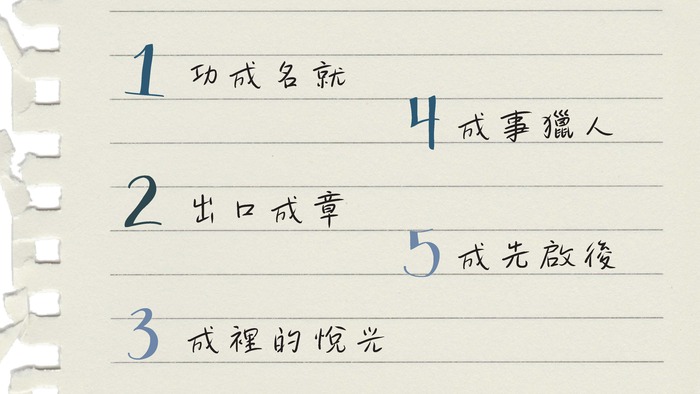 1 功成名就
2 出口成章
3 成裡的悅光
4 成事獵人
5 成先啟後